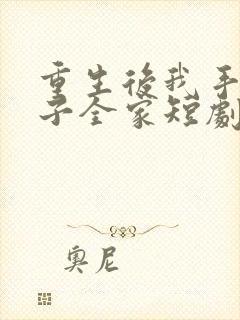 重生後我手
子全家短劇
奧尼